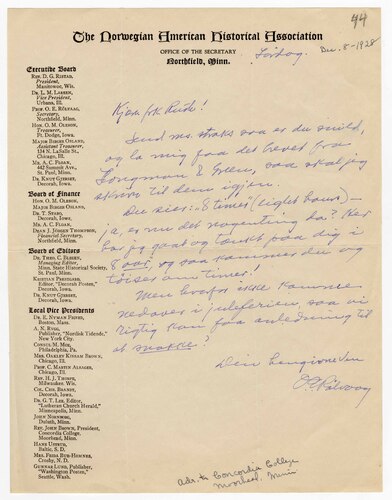 44
The Norwegian American Historical Association
OFFICE OF THE SECRETARY
Northfield, Minn.
Lördag. Dec. 8-1928
Executive Board
REV. D. G. RISTAD,
President,
Manitowoc, Wis.
DR. L. M. LARSEN,
Vice President,
Urbana, Ill.
PROF. O. E. RÖLVAAG,
Secretary,
Northfield, Minn.
HON. O. M. OLESON,
Treasurer,
Ft. Dodge, Iowa.
MAJOR BIRGER OSLAND,
Assistant Treasurer,
134 N. LaSalle St.
Chicago, Ill.
MR. A. C. FLOAN,
442 Summit Ave.,
St. Paul, Minn.
DR. KNUT GJERSET,
Decorah, Iowa.
Board of Finance
HON. O. M. OLESON,
MAJOR BIRGER OSLAND,
DR. T. STABO,
Decorah, Iowa.
MR. A. C. FLOAN,
DEAN J. JÖRGEN THOMPSON,
Financial Secretary,
Northfield, Minn.
Board of Editors
DR. THEO. C. BLEGEN,
Managing Editor,
Minn. State Historical Society,
St. Paul, Minn.
KRISTIAN PRESTGARD,
Editor, "Decorah Posten,"
Decorah, Iowa.
DR. KNUT GJERSET,
Decorah, Iowa.
Local Vice Presidents
DR. E. NYMAN FIGVED,
Boston, Mass.
A. N. RYGG,
Publisher, "Nordisk Tidende,"
New York, N. Y.
CONSUL M. MOE,
Philadelphia, Pa.
MRS. OAKLEY KISSAM BROWN,
Chicago, Ill.
PROF. C. MARTIN ALSAGER,
Chicago, Ill.
REV. H. J. THORPE,
Milwaukee, Wis.
COL. CHR. BRANDT,
Decorah, Iowa.
DR. G. T. LEE, Editor,
"Lutheran Church Herald,"
Minneapolis, Minn.
JOHN NORMOE,
Duluth, Minn.
REV. JOHN BROWN, President,
Concordia College,
Moorhead, Minn.
HANS USTRUD,
Baltic, S. D.
MRS. FRIDA BUE-HOMNES,
Crosby, N. D.
GUNNAR LUND, Publisher,
"Washington Posten,"
Seattle, Wash.
Kjære frk Rude!
Send mss. straks saa er du snild,
og la mig faa det brevet fra
Longman & Green, saa skal jeg
skrive til dem igjen.
Du sier: 8 timer (eight hours) –
ja, er nu det nogenting da? Her
har jeg gaat og lengt paa dig i
8 aar, og saa kommer du og
timer!
Men hvorfor ikke komme
nedover i juleferien, saa vi
rigtig kan faa anledning til
at snakke?
Din hengivne ven
O. E. Rölvaag
Adr. to Concordia College
Moorhead, Minn